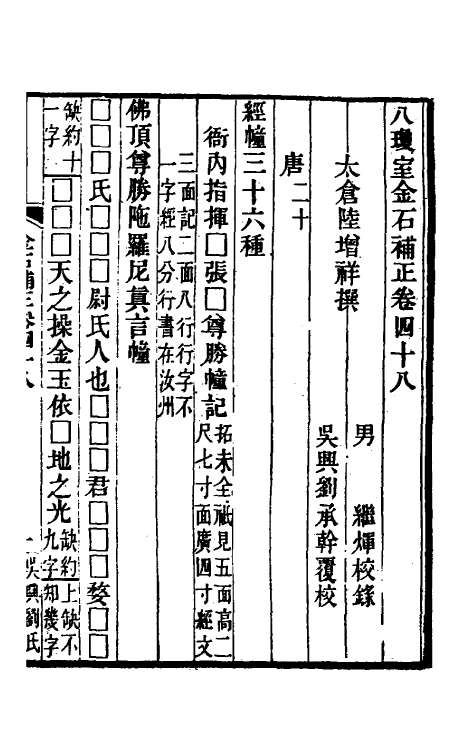 八瓊室金石補正卷四十八
太倉陸增祥撰
男　繼煇校錄
吳興劉承幹覆校
唐二十
經幢三十六種
衙內指揮□張□尊勝幢記拓未全祗見五面高二尺七寸面廣四寸經文
三面記二面八行行字不
一字經八分行書在汝州
佛頂尊勝陁羅尼眞言幢
□□□氏□□□尉氏人也□□□君□□□婺□□
缺約十一字□□□天之操金玉依□地之光缺約九字上缺不知幾字
金石補正卷四十八
一吳興劉氏